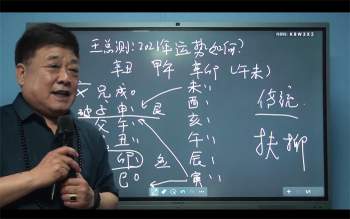 王总测:2021年运势如何?
辛丑 甲午 辛卯 (午未)
兄戌 未
子申 艮 酉
父午 亥
丑 午
卯 辰
巳 寅
传统
扶抑